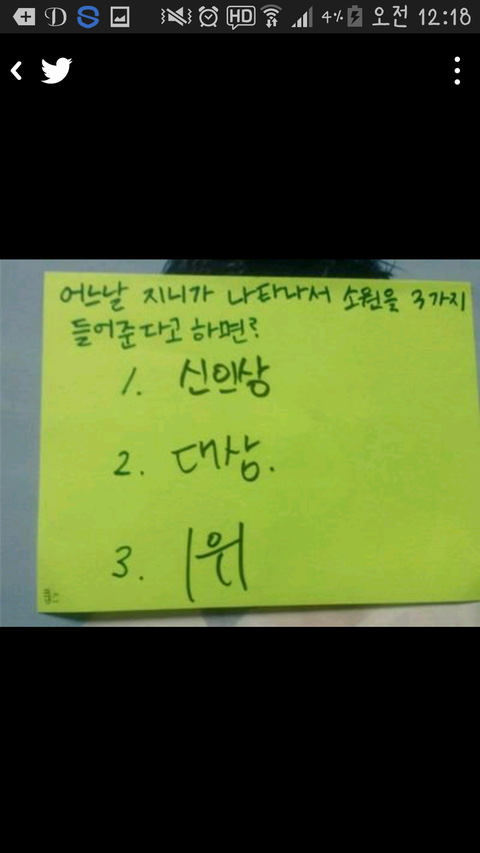 4% 오전 12:18
HD
어느날 지니가 나타나서 소원을 3가지
들어준다고 하면?
1. 신인상
2. 대상.
3. 1위